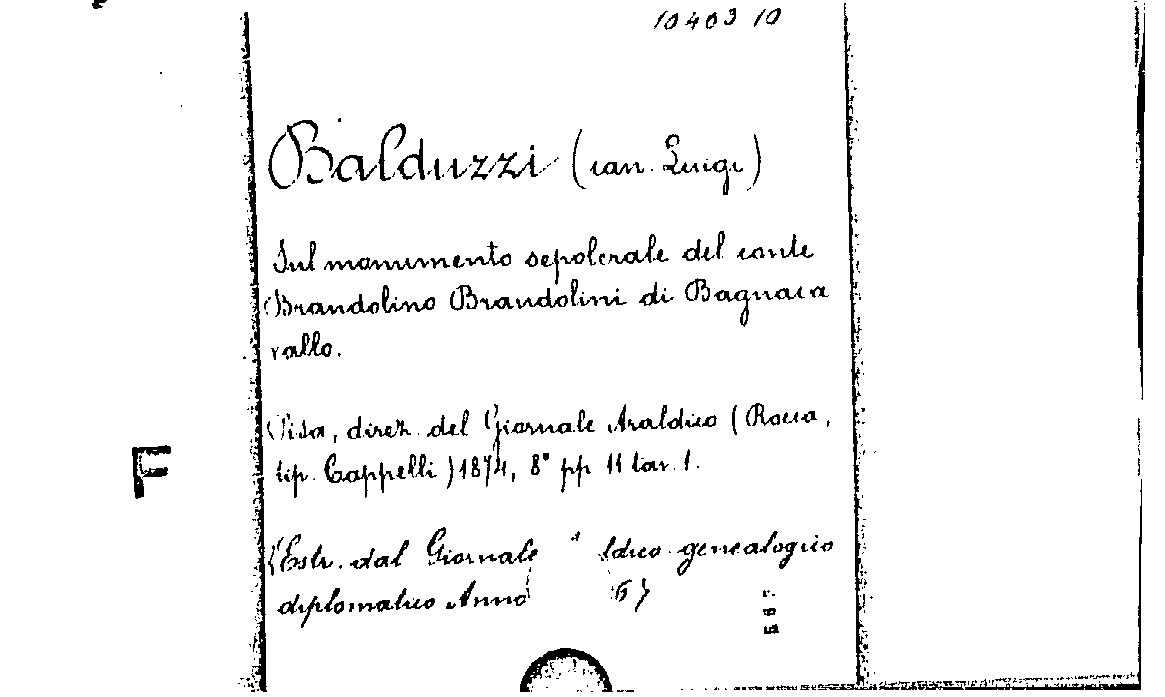 10403 10
Balduzzi (can. Luigi)
Sul monumento sepolcrale del conte
Brandolino Brandolini di Bagnaca
vallo.
F
Pisa, direz. del Giornale Araldico (Rocca,
tip. Cappelli) 1874, 8° pp 11 tav. 1.
(Estr. dal Giornale genealogico
diplomatico Anno